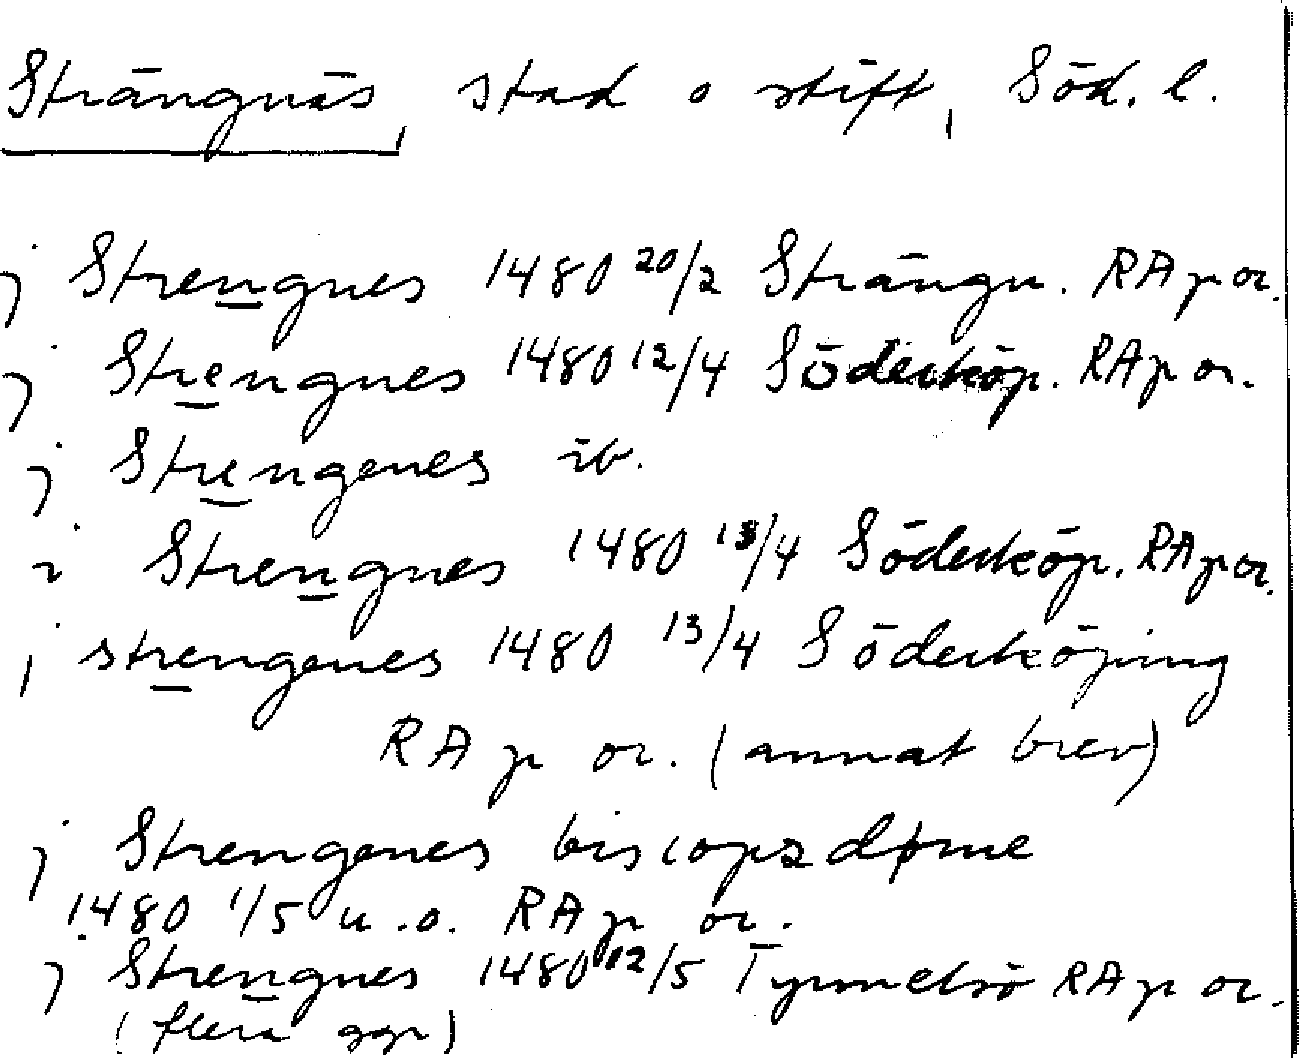 Strängnäs, stad o stift, Söd. l.
j Strengnes 1480 20/2 Strängn. RAp or.
j Strengnes 1480 12/4 Söderköp. RAp or.
j Strengenes ib.
i Strengnes 1480 13/4 Söderköp. RAp or.
j strengenes 1480 13/4 Söderköping
RAp or. (annat brev)
j Strengenes biscopzdøme
1480 1/5 u.o. RAp or.
j Strengnes 1480 12/5 Tynnelsö RAp or.
(flera ggr)